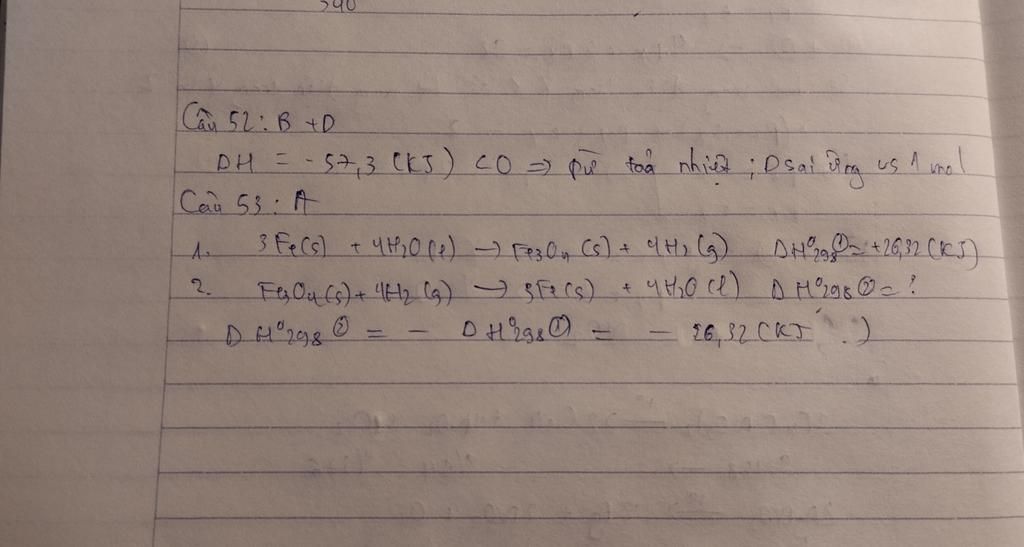 540
Câu 52: B + D
DH = - 57,3 (KJ) < 0 => pứ toả nhiệt ; D sai ứng vs 1 mol
Câu 53: A
1. 3Fe(s) + 4H2O(l) → Fe3O4 (s) + 4H2 (g) DH⁰298 ① = +26,32 (KJ)
2. Fe3O4(s) + 4H2 (g) → 3Fe(s) + 4H2O (l) DH⁰298 ② = ?
DH⁰298 ② = - DH⁰298 ① = - 26,32 (KJ )